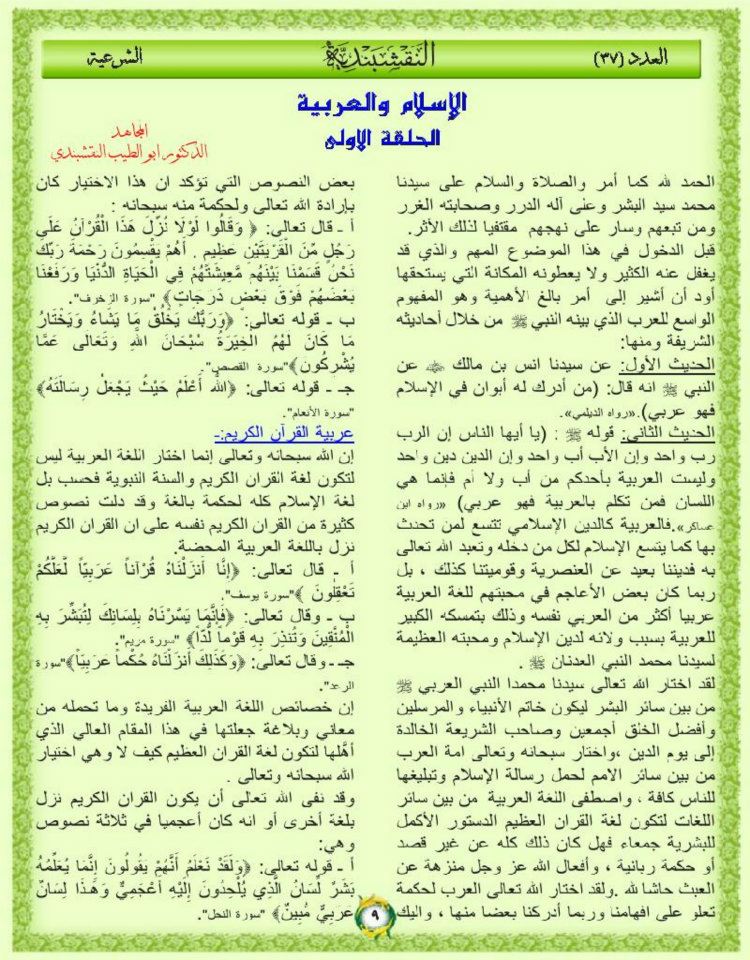 العدد (٣٧)
النقشبندية
الشرعية
الإسلام والعربية
الحلقة الاولى
المجاهد
الدكتور ابو الطيب النقشبندي
الحمد لله كما أمر والصلاة والسلام على سيدنا
محمد سيد البشر وعلى آله الدرر وصحابته الغرر
ومن تبعهم وسار على نهجهم مقتفيا لذلك الأثر.
قبل الدخول في هذا الموضوع المهم والذي قد
يغفل عنه الكثير ولا يعطونه المكانة التي يستحقها
أود أن أشير إلى أمر بالغ الأهمية وهو المفهوم
الواسع للعرب الذي بينه النبي ﷺ من خلال أحاديثه
الشريفة ومنها:
الحديث الأول: عن سيدنا انس بن مالك عن
النبي ﷺ انه قال: (من أدرك له أبوان في الإسلام
فهو عربي).«رواه الديلمي».
الحديث الثاني: قوله ﷺ : (يا أيها الناس إن الرب
رب واحد وإن الأب أب واحد وإن الدين دين واحد
وليست العربية بأحدكم من أب ولا أم فإنما هي
اللسان فمن تكلم بالعربية فهو عربي) «رواه ابن
عساكر».فالعربية كالدين الإسلامي تتسع لمن تحدث
بها كما يتسع الإسلام لكل من دخله وتعبد الله تعالى
به فديننا بعيد عن العنصرية وقوميتنا كذلك ، بل
ربما كان بعض الأعاجم في محبتهم للغة العربية
عربيا أكثر من العربي نفسه وذلك بتمسكه الكبير
للعربية بسبب ولائه لدين الإسلام ومحبته العظيمة
لسيدنا محمد النبي العدنان ﷺ .
لقد اختار الله تعالى سيدنا محمدا النبي العربي ﷺ
من بين سائر البشر ليكون خاتم الأنبياء والمرسلين
وأفضل الخلق أجمعين وصاحب الشريعة الخالدة
إلى يوم الدين ،واختار سبحانه وتعالى امة العرب
من بين سائر الامم لحمل رسالة الإسلام وتبليغها
للناس كافة ، واصطفى اللغة العربية من بين سائر
اللغات لتكون لغة القران العظيم الدستور الأكمل
للبشرية جمعاء فهل كان ذلك كله عن غير قصد
أو حكمة ربانية ، وأفعال الله عز وجل منزهة عن
العبث حاشا لله .ولقد اختار الله تعالى العرب لحكمة
تعلو على افهامنا وربما أدركنا بعضا منها ، واليك
بعض النصوص التي تؤكد ان هذا الاختيار كان
بإرادة الله تعالى ولحكمة منه سبحانه :
أ ـ قال تعالى: ﴿ وَقَالُوا لَوْلَا نُزِّلَ هَذَا الْقُرْآنُ عَلَى
رَجُلٍ مِّنَ الْقَرْيَتَيْنِ عَظِيمٍ . أَهُمْ يَقْسِمُونَ رَحْمَةَ رَبِّكَ
نَحْنُ قَسَمْنَا بَيْنَهُم مَّعِيشَتَهُمْ فِي الْحَيَاةِ الدُّنْيَا وَرَفَعْنَا
بَعْضَهُمْ فَوْقَ بَعْضٍ دَرَجَاتٍ﴾ "سورة الزخرف".
ب ـ قوله تعالى: ﴿وَرَبُّكَ يَخْلُقُ مَا يَشَاءُ وَيَخْتَارُ
مَا كَانَ لَهُمُ الْخِيَرَةُ سُبْحَانَ اللَّهِ وَتَعَالَى عَمَّا
يُشْرِكُونَ﴾"سورة القصص".
جـ ـ قوله تعالى: ﴿اللَّهُ أَعْلَمُ حَيْثُ يَجْعَلُ رِسَالَتَهُ﴾
"سورة الأنعام".
عربية القرآن الكريم:-
إن الله سبحانه وتعالى إنما اختار اللغة العربية ليس
لتكون لغة القران الكريم والسنة النبوية فحسب بل
لغة الإسلام كله لحكمة بالغة وقد دلت نصوص
كثيرة من القران الكريم نفسه على ان القران الكريم
نزل باللغة العربية المحضة.
أ ـ قال تعالى: ﴿إِنَّا أَنزَلْنَاهُ قُرْآناً عَرَبِيّاً لَّعَلَّكُمْ
تَعْقِلُونَ ﴾"سورة يوسف".
ب ـ وقال تعالى: ﴿فَإِنَّمَا يَسَّرْنَاهُ بِلِسَانِكَ لِتُبَشِّرَ بِهِ
الْمُتَّقِينَ وَتُنذِرَ بِهِ قَوْماً لُّدّاً﴾ "سورة مريم".
جـ ـ وقال تعالى: ﴿وَكَذَلِكَ أَنزَلْنَاهُ حُكْماً عَرَبِيّاً﴾"سورة
الرعد".
إن خصائص اللغة العربية الفريدة وما تحمله من
معاني وبلاغة جعلتها في هذا المقام العالي الذي
أهّلها لتكون لغة القران العظيم كيف لا وهي اختيار
الله سبحانه وتعالى .
وقد نفى الله تعالى أن يكون القران الكريم نزل
بلغة أخرى أو انه كان أعجميا في ثلاثة نصوص
وهي:
أ ـ قوله تعالى: ﴿وَلَقَدْ نَعْلَمُ أَنَّهُمْ يَقُولُونَ إِنَّمَا يُعَلِّمُهُ
بَشَرٌ لِّسَانُ الَّذِي يُلْحِدُونَ إِلَيْهِ أَعْجَمِيٌّ وَهَذَا لِسَانٌ
عَرَبِيٌّ مُّبِينٌ﴾ "سورة النحل".
٩